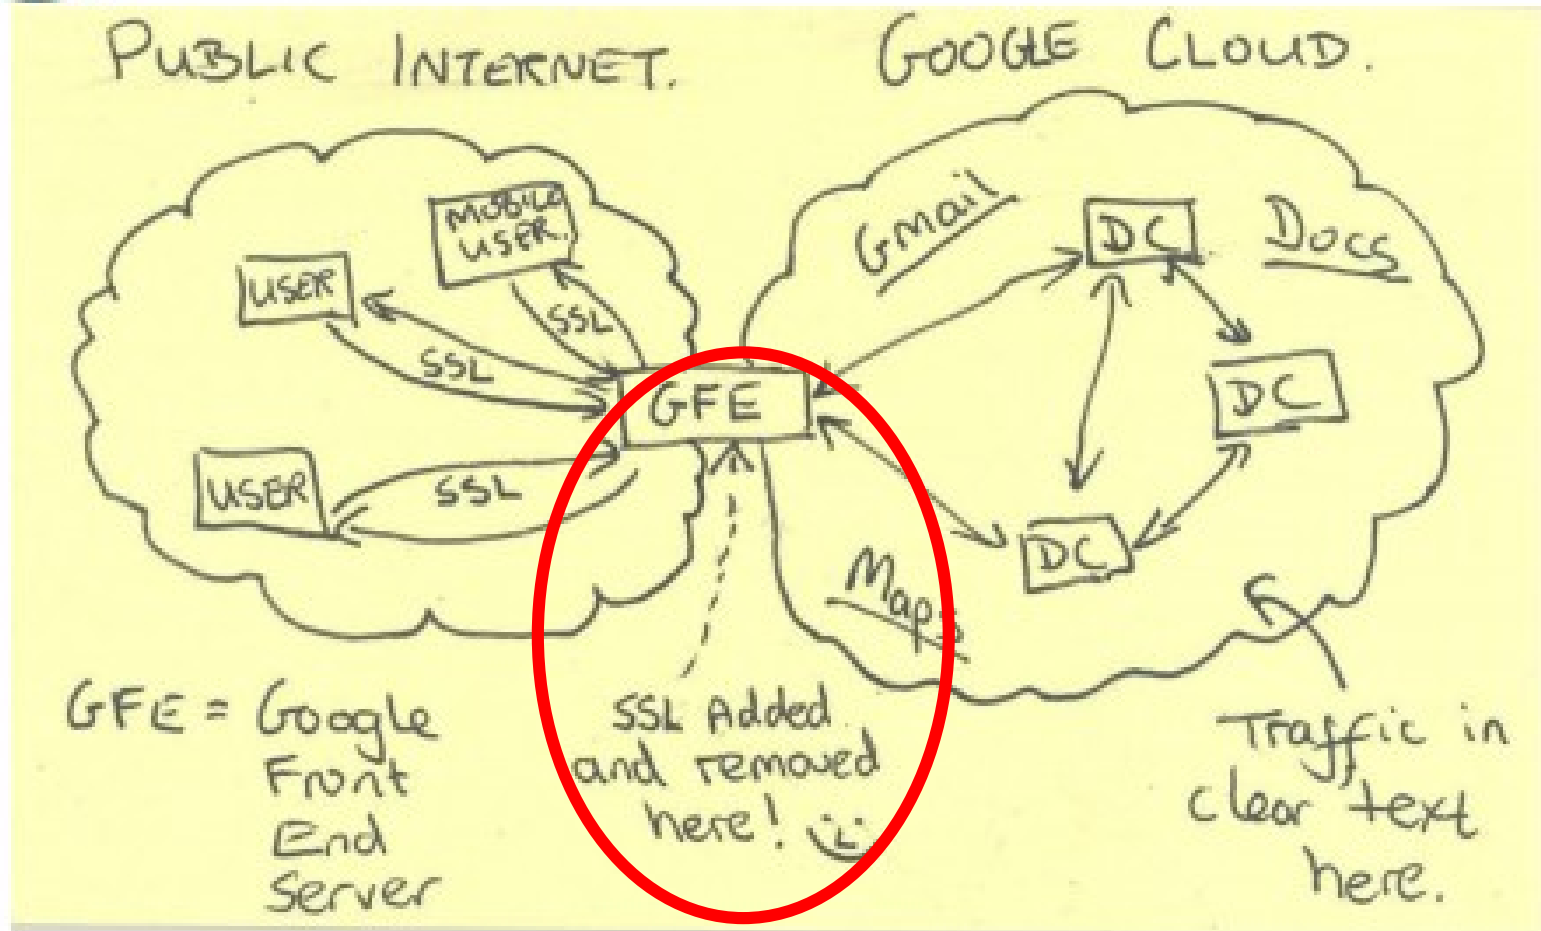 PUBLIC INTERNET.
GOOGLE CLOUD.
MOBILE
USER.
USER
SSL
SSL
USER
SSL
GFE
Gmail
DC
Docs
DC
DC
Maps
GFE = Google
Front
End
Server
SSL Added
and removed
here!
Traffic in
clear text
here.